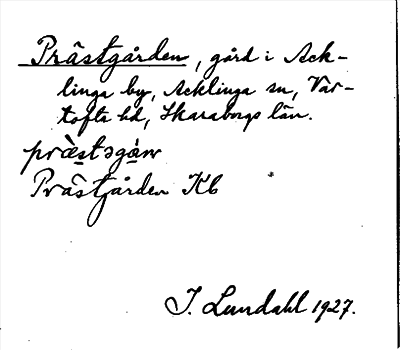 Prästgården, gård i Ack-
linga by, Acklinga sn, Var-
tofta hd, Skaraborgs län.
præ̀stəgán
Prästgården Kb
I. Lundahl 1927.